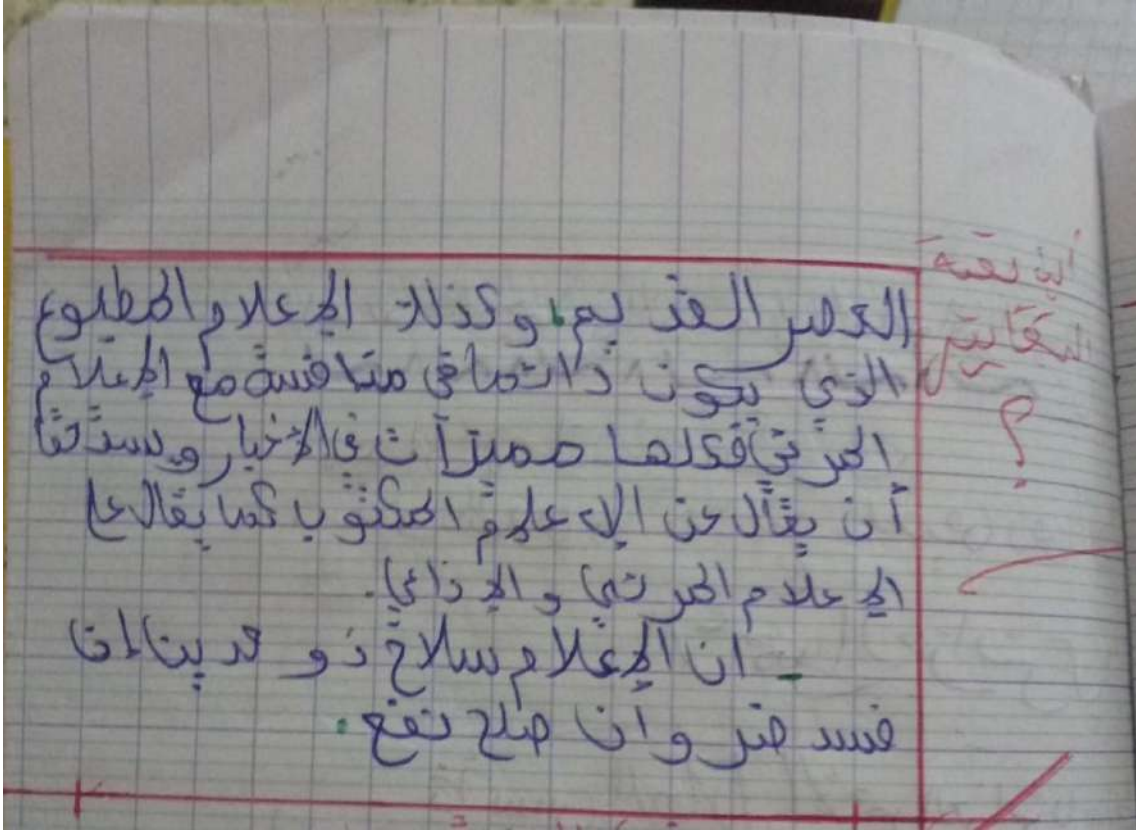 العصر القديم، وكذلك الإعلام المطبوع
الذي يكون دائما في منافسة مع الإعلام
المرئي فكلها مميزات في الأخبار و
أن يقال عن الإعلام المكتوب كما يقال عل
الإعلام المرئي والإذاعي.
- ان الإعلام سلاح ذو حدين ان
فسد ضر وان صلح نفع.
أين بقية
؟